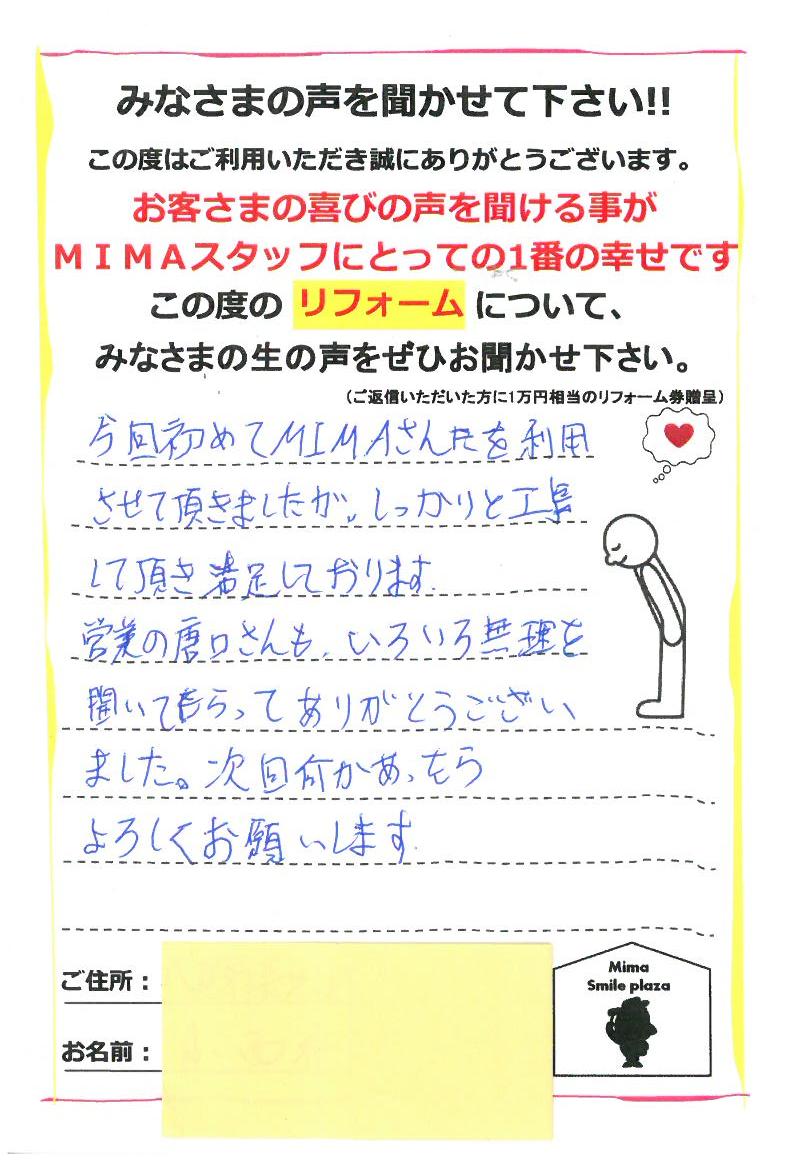 みなさまの声を聞かせて下さい!!
この度はご利用いただき誠にありがとうございます。
お客さまの喜びの声を聞ける事が
ＭＩＭＡスタッフにとっての1番の幸せです
この度の リフォーム について、
みなさまの生の声をぜひお聞かせ下さい。
（ご返信いただいた方に1万円相当のリフォーム券贈呈）
今回初めてMIMAさんを利用
させて頂きましたが、しっかりと工事
して頂き満足しております。
営業の唐口さんも、いろいろ無理を
聞いてもらってありがとうござい
ました。次回何かあったら
よろしくお願いします
ご住所：
お名前：
Mima
Smile plaza